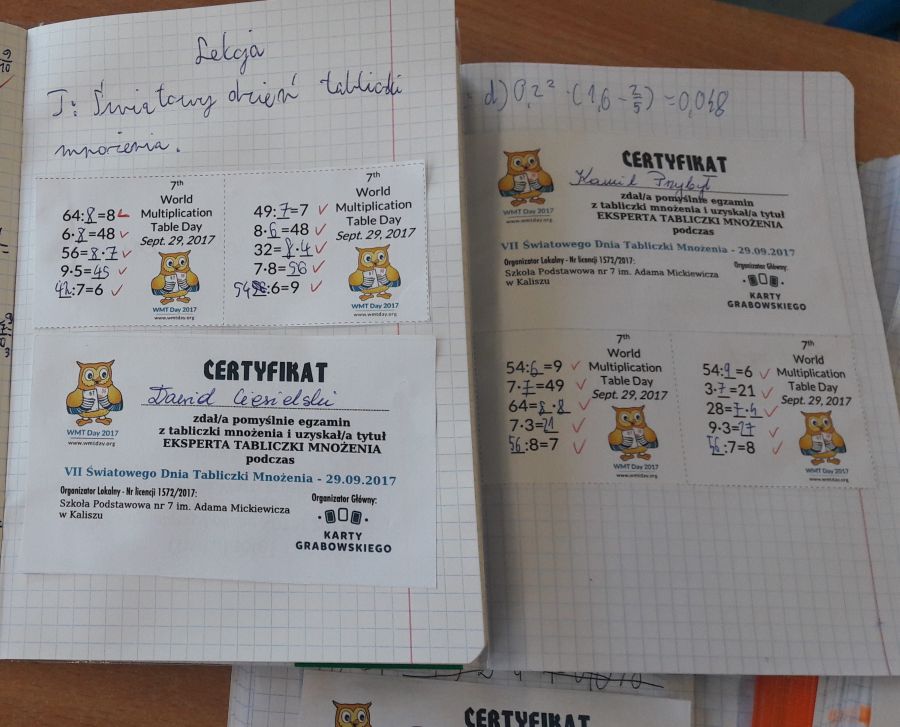 Lekcja
T: Światowy dzień tabliczki
mnożenia.
64:8=8
6·8=48
56=8·7
9·5=45
42:7=6
7th
World
Multiplication
Table Day
Sept. 29, 2017
WMT Day 2017
www.wmtday.org
49:7=7
8·6=48
32=8·4
7·8=56
54:6=9
7th
World
Multiplication
Table Day
Sept. 29, 2017
WMT Day 2017
www.wmtday.org
WMT Day 2017
www.wmtday.org
CERTYFIKAT
Dawid Ciesielski
zdał/a pomyślnie egzamin
z tabliczki mnożenia i uzyskał/a tytuł
EKSPERTA TABLICZKI MNOŻENIA
podczas
VII Światowego Dnia Tabliczki Mnożenia - 29.09.2017
Organizator Lokalny - Nr licencji 1572/2017:
Szkoła Podstawowa nr 7 im. Adama Mickiewicza
w Kaliszu
Organizator Główny:
KARTY
GRABOWSKIEGO
d) 0,2² · (1,6 - 2/5) = 0,048
WMT Day 2017
www.wmtday.org
CERTYFIKAT
Kamil Przybył
zdał/a pomyślnie egzamin
z tabliczki mnożenia i uzyskał/a tytuł
EKSPERTA TABLICZKI MNOŻENIA
podczas
VII Światowego Dnia Tabliczki Mnożenia - 29.09.2017
Organizator Lokalny - Nr licencji 1572/2017:
Szkoła Podstawowa nr 7 im. Adama Mickiewicza
w Kaliszu
Organizator Główny:
KARTY
GRABOWSKIEGO
54:6=9
7·7=49
64=8·8
7·3=21
56:8=7
7th
World
Multiplication
Table Day
Sept. 29, 2017
WMT Day 2017
www.wmtday.org
54:9=6
3·7=21
28=7·4
9·3=27
56:7=8
7th
World
Multiplication
Table Day
Sept. 29, 2017
WMT Day 2017
www.wmtday.org
CERTYFIKAT